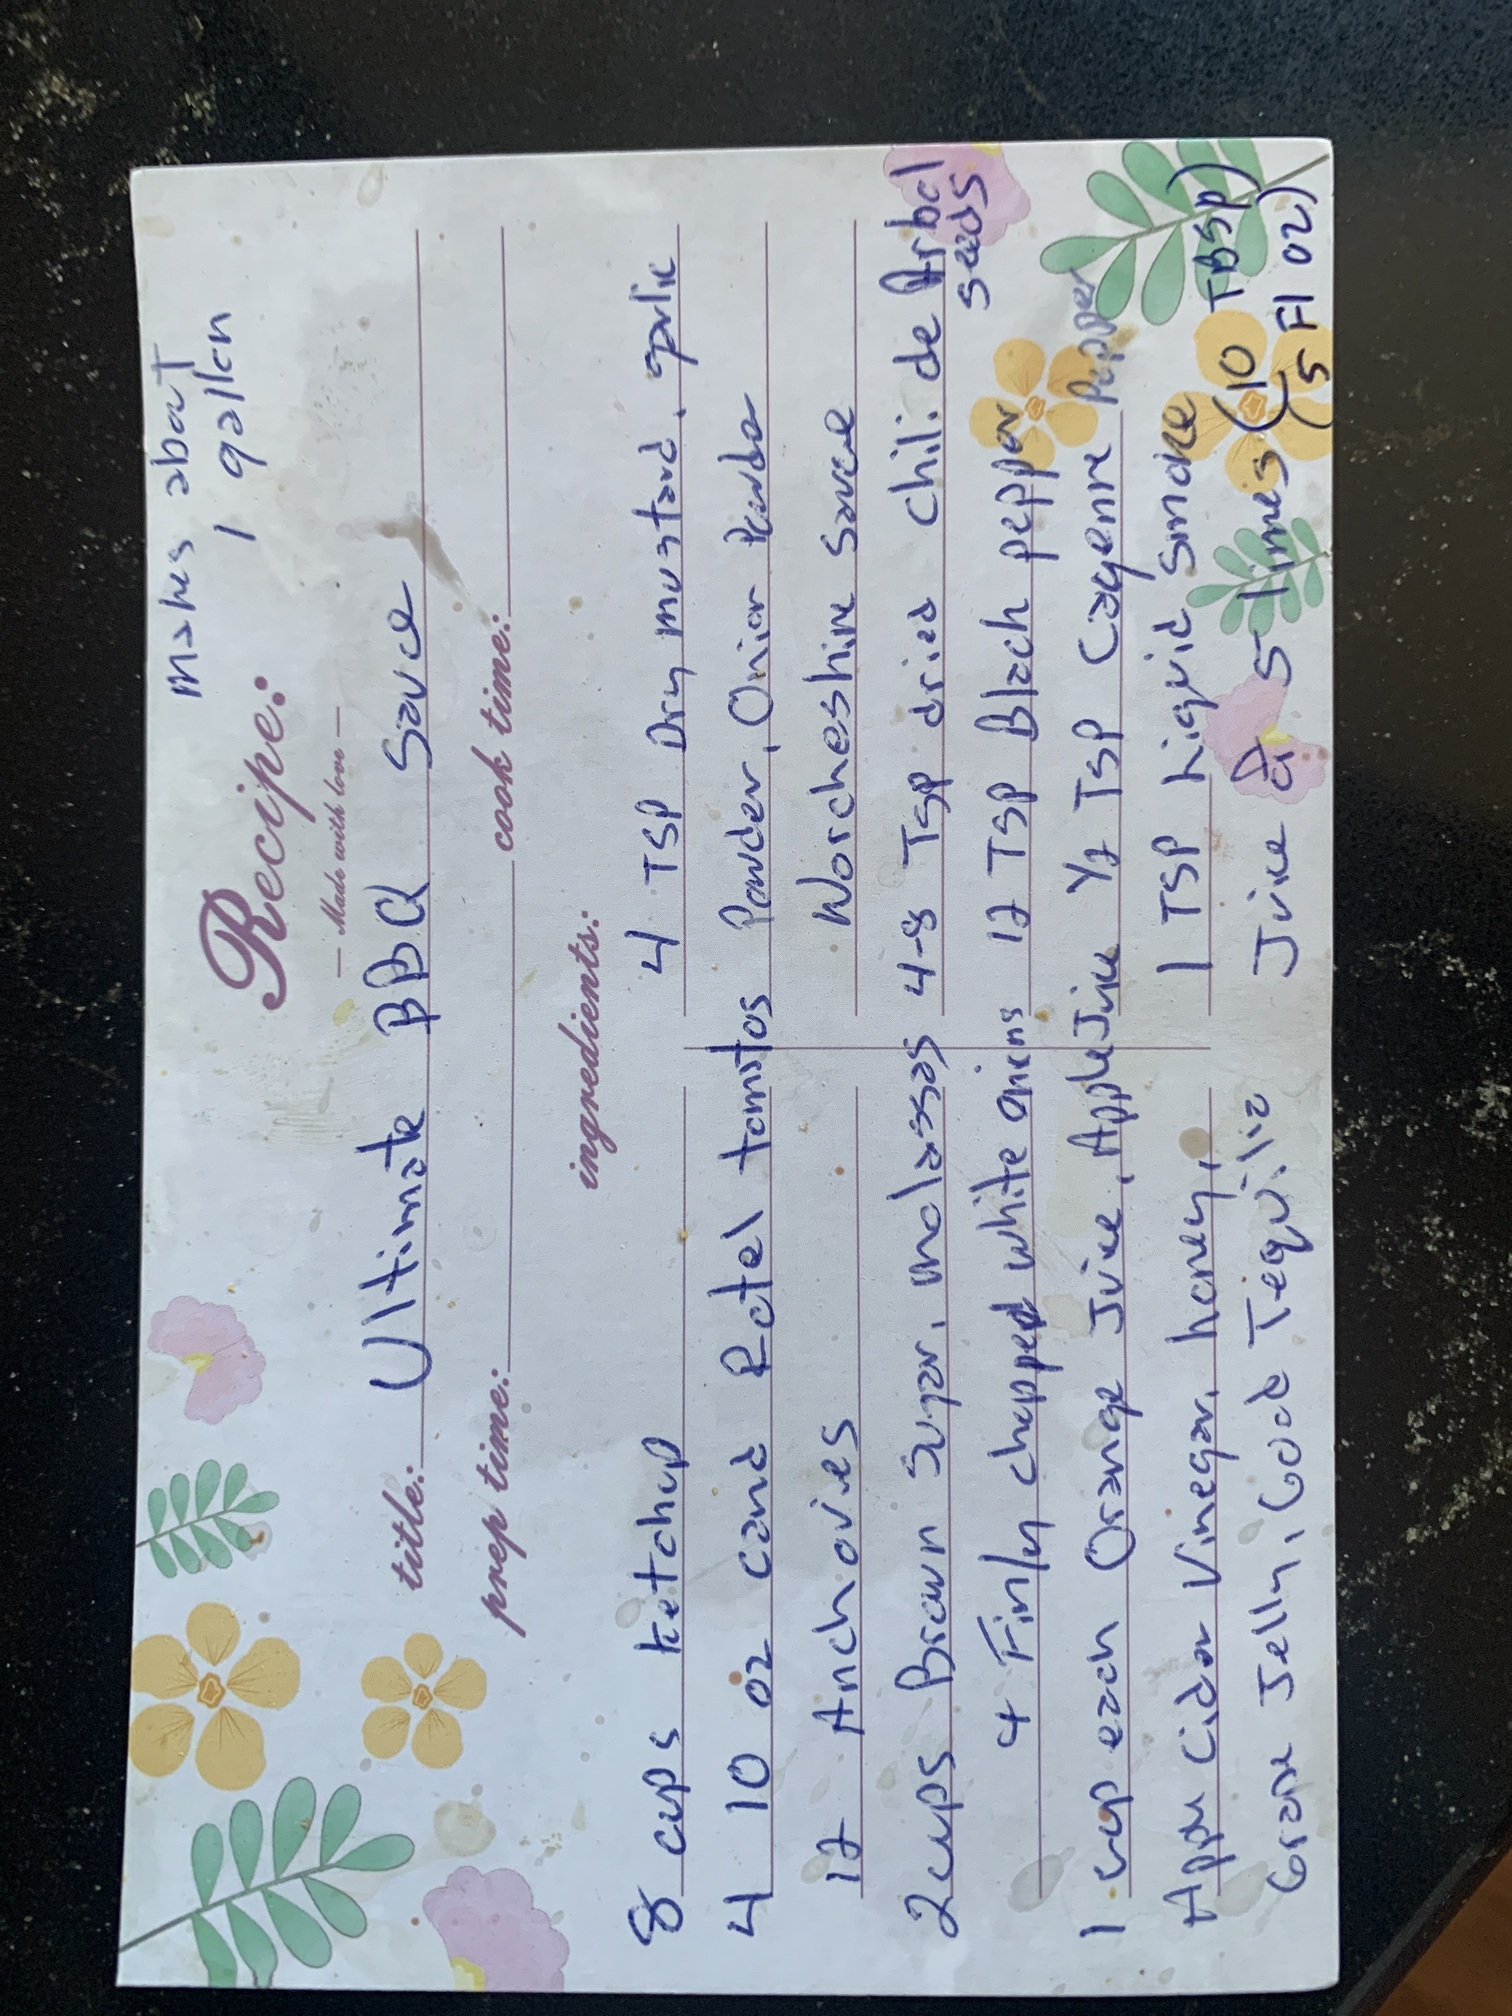 makes about
1 gallon
Recipe:
— Made with love —
title: Ultimate BBQ Sauce
prep time: cook time:
ingredients:
8 cups ketchup
4 10 oz cand Rotel tomatos
12 Anchovies
2 cups Brown Sugar, molasses
4 Finly chopped white onions
1 cup each Orange Juice, Apple Juice
Apple Cider Vinegar, honey,
Grape Jelly, Good Tequilia
4 TSP Dry mustard, garlic
Powder, Onion Powder
Worcheshire Sauce
4-8 TSP dried chili de Arbol
seeds
12 TSP Black pepper
1/2 TSP Cayenne Pepper
1 TSP Liquid Smoke
Juice of 5 limes (10 TBSP)
(5 Fl oz)